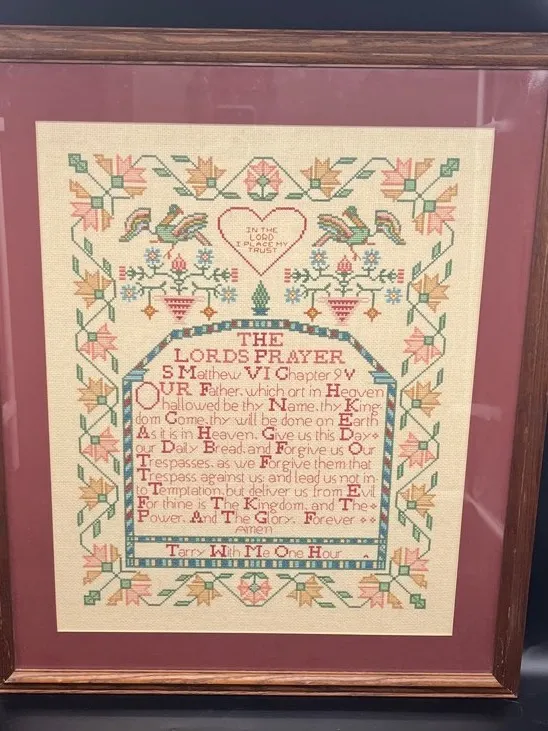 IN THE
LORD
I PLACE MY
TRUST
THE
LORDS PRAYER
S Matthew VI Chapter 9 V
OUR Father, which art in Heaven
hallowed be thy Name, thy King-
dom Come, thy will be done on Earth
As it is in Heaven. Give us this Day
our Daily Bread, and Forgive us Our
Trespasses, as we Forgive them that
Trespass against us; and lead us not in-
to Temptation, but deliver us from Evil
For thine is The Kingdom, and The
Power, And The Glory, Forever
Amen
Tarry With Me One Hour